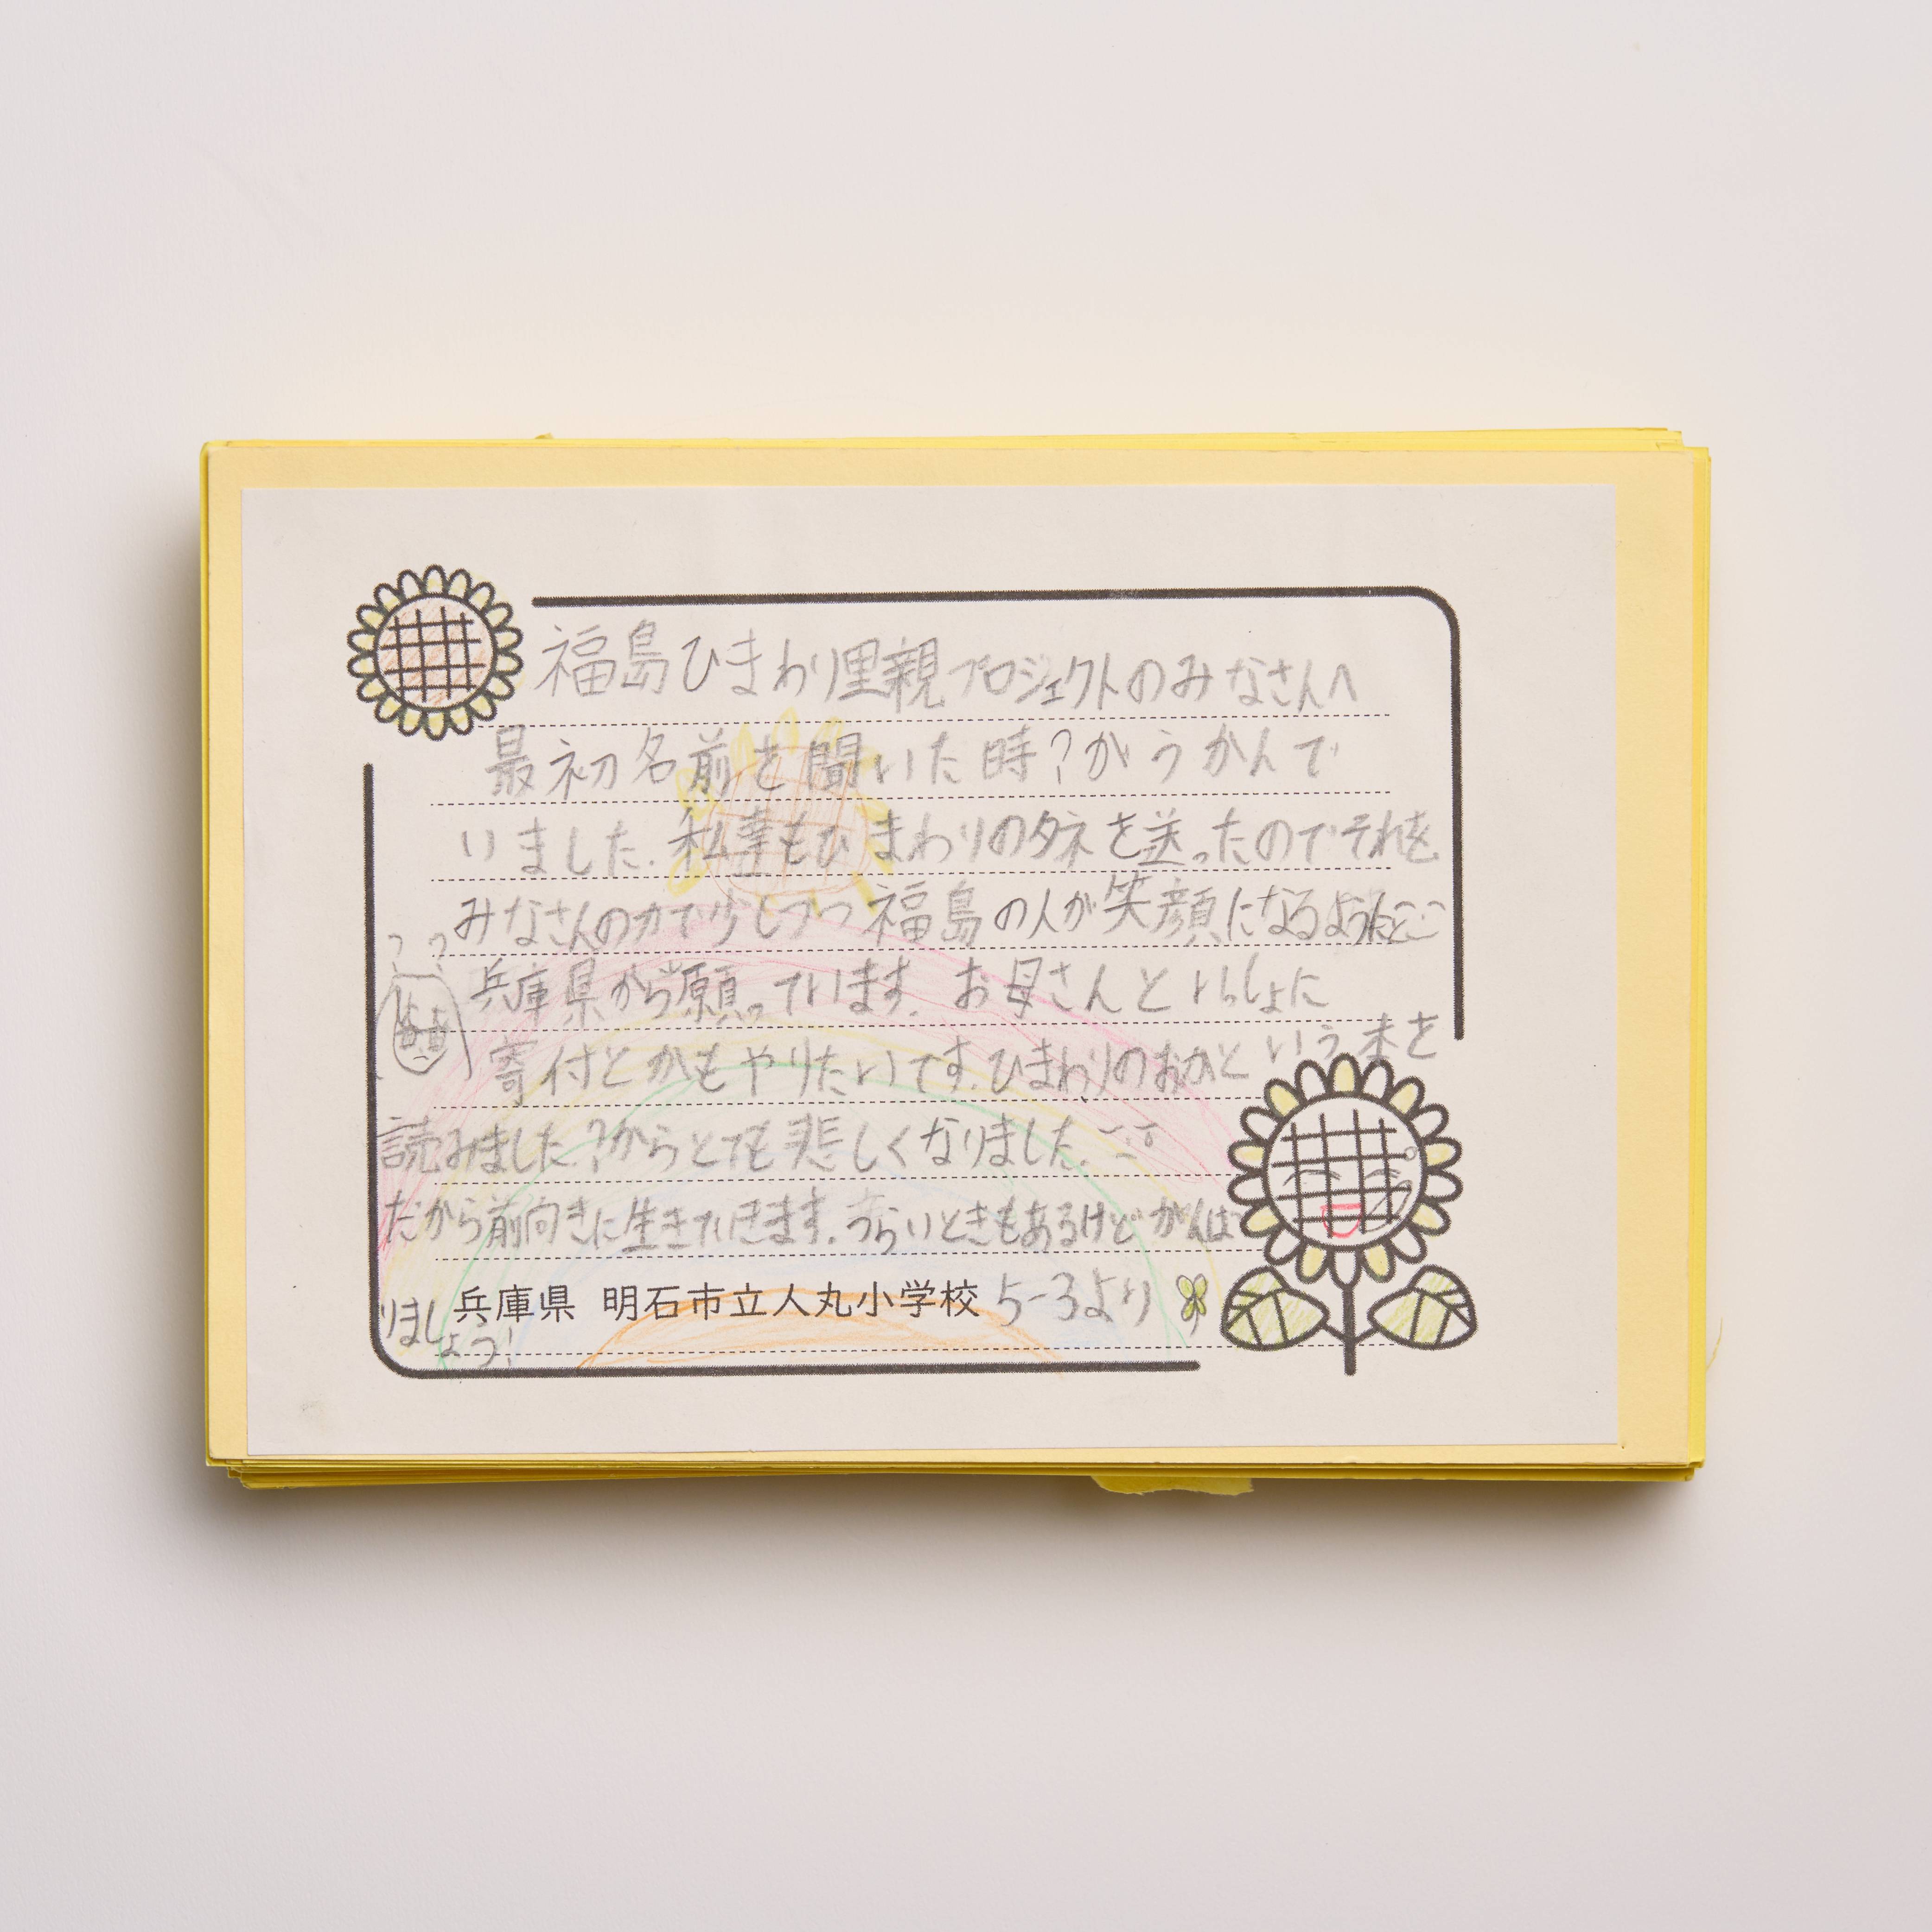 福島ひまわり里親プロジェクトのみなさんへ
最初名前を聞いた時?がうかんで
いました。私達もひまわりのタネを送ったのでそれを
みなさんの力で少しづつ福島の人が笑顔になるように
兵庫県から願っています。お母さんといっしょに
寄付とかもやりたいです。ひまわりのおかという本を
読みました。?からとても悲しくなりました。
だから前向きに生きていきます。つらいときもあるけどがんば
りましょう!
兵庫県 明石市立人丸小学校 5-3より